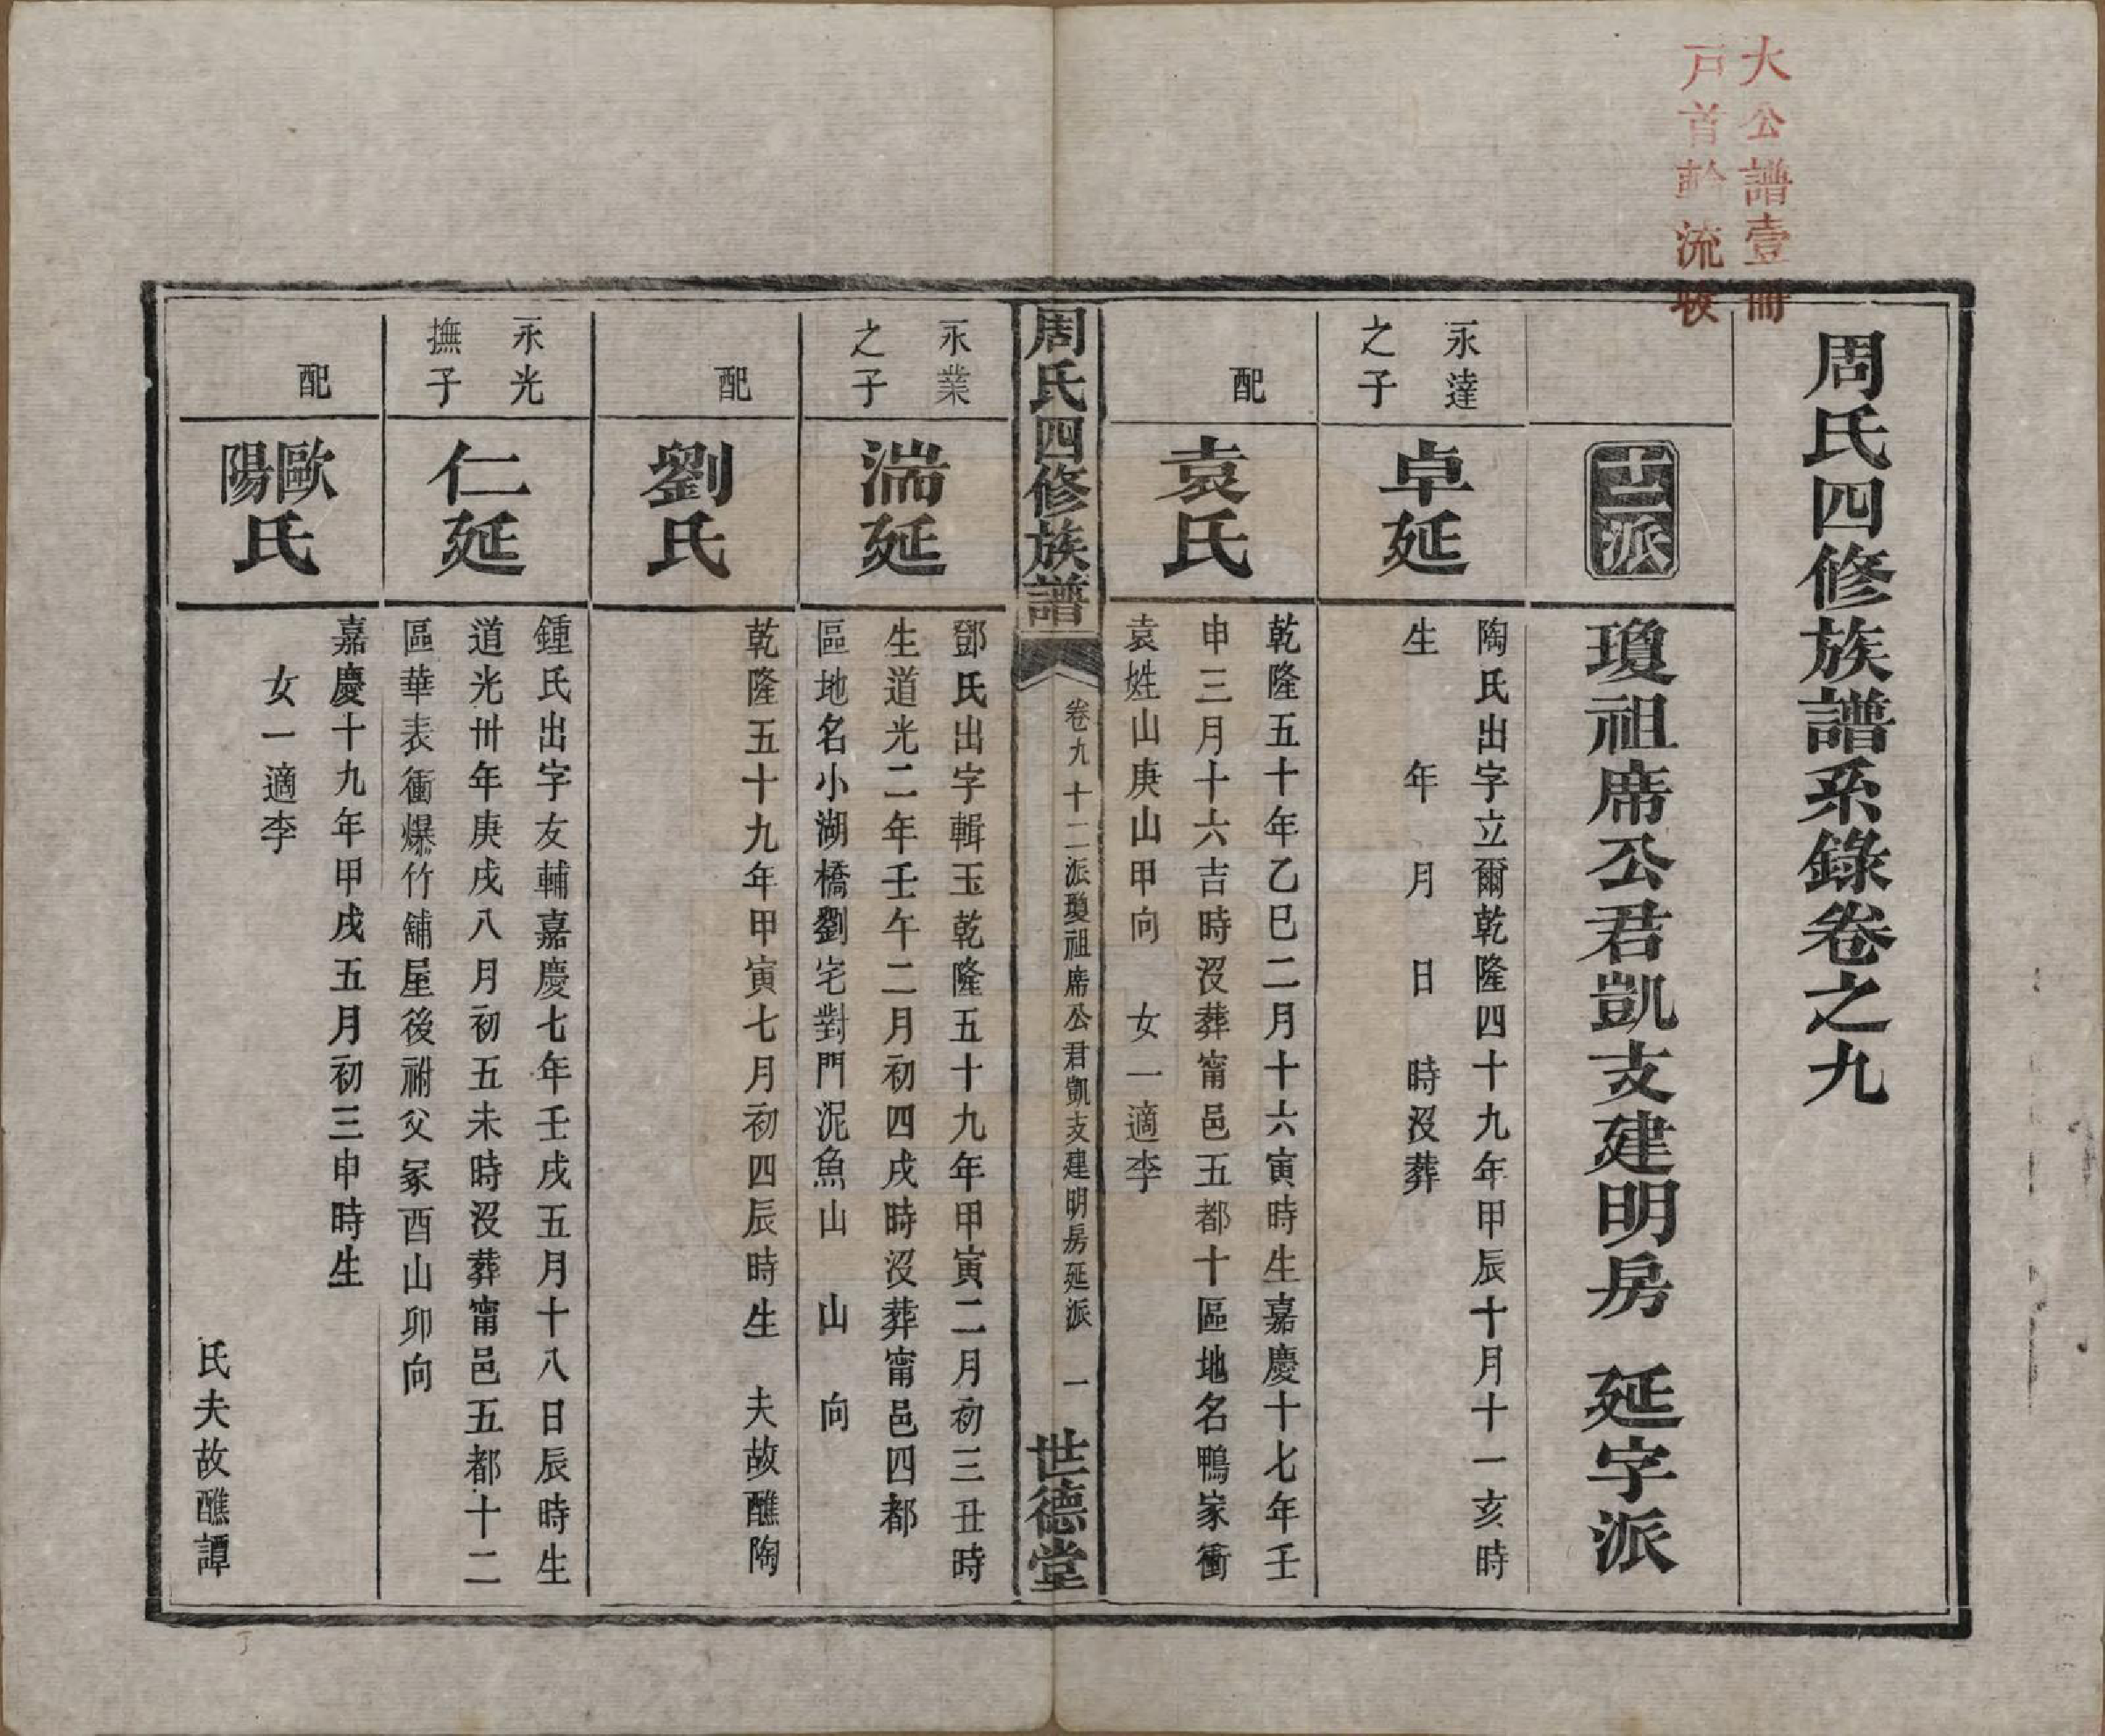 大公譜壹冊
戸首幹流收
周氏四修族譜系錄卷之九
十二派
瓊祖席公君凱支建明房 延字派
永達
之子
卓延
陶氏出字立爾乾隆四十九年甲辰十月十一亥時
生 年 月 日 時沒葬
配
袁氏
乾隆五十年乙巳二月十六寅時生嘉慶十七年壬
申三月十六吉時沒葬甯邑五都十區地名鴨家衝
袁姓山庚山甲向 女一適李
周氏四修族譜
卷九 十二派瓊祖席公君凱支建明房延派 一
世德堂
永業
之子
湍延
鄧氏出字輯玉乾隆五十九年甲寅二月初三丑時
生道光二年壬午二月初四戌時沒葬甯邑四都
區地名小湖橋劉宅對門泥魚山 山 向
配
劉氏
乾隆五十九年甲寅七月初四辰時生 夫故醮陶
永光
撫子
仁延
鍾氏出字友輔嘉慶七年壬戌五月十八日辰時生
道光卅年庚戌八月初五未時沒葬甯邑五都十二
區華表衝爆竹舖屋後祔父冢酉山卯向
配
歐陽氏
嘉慶十九年甲戌五月初三申時生
女一適李
氏夫故醮譚